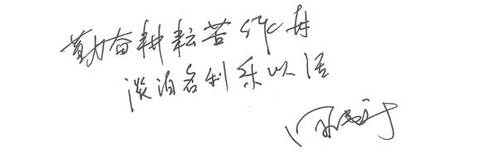 勤奋耕耘苦作舟
淡泊名利乐以活